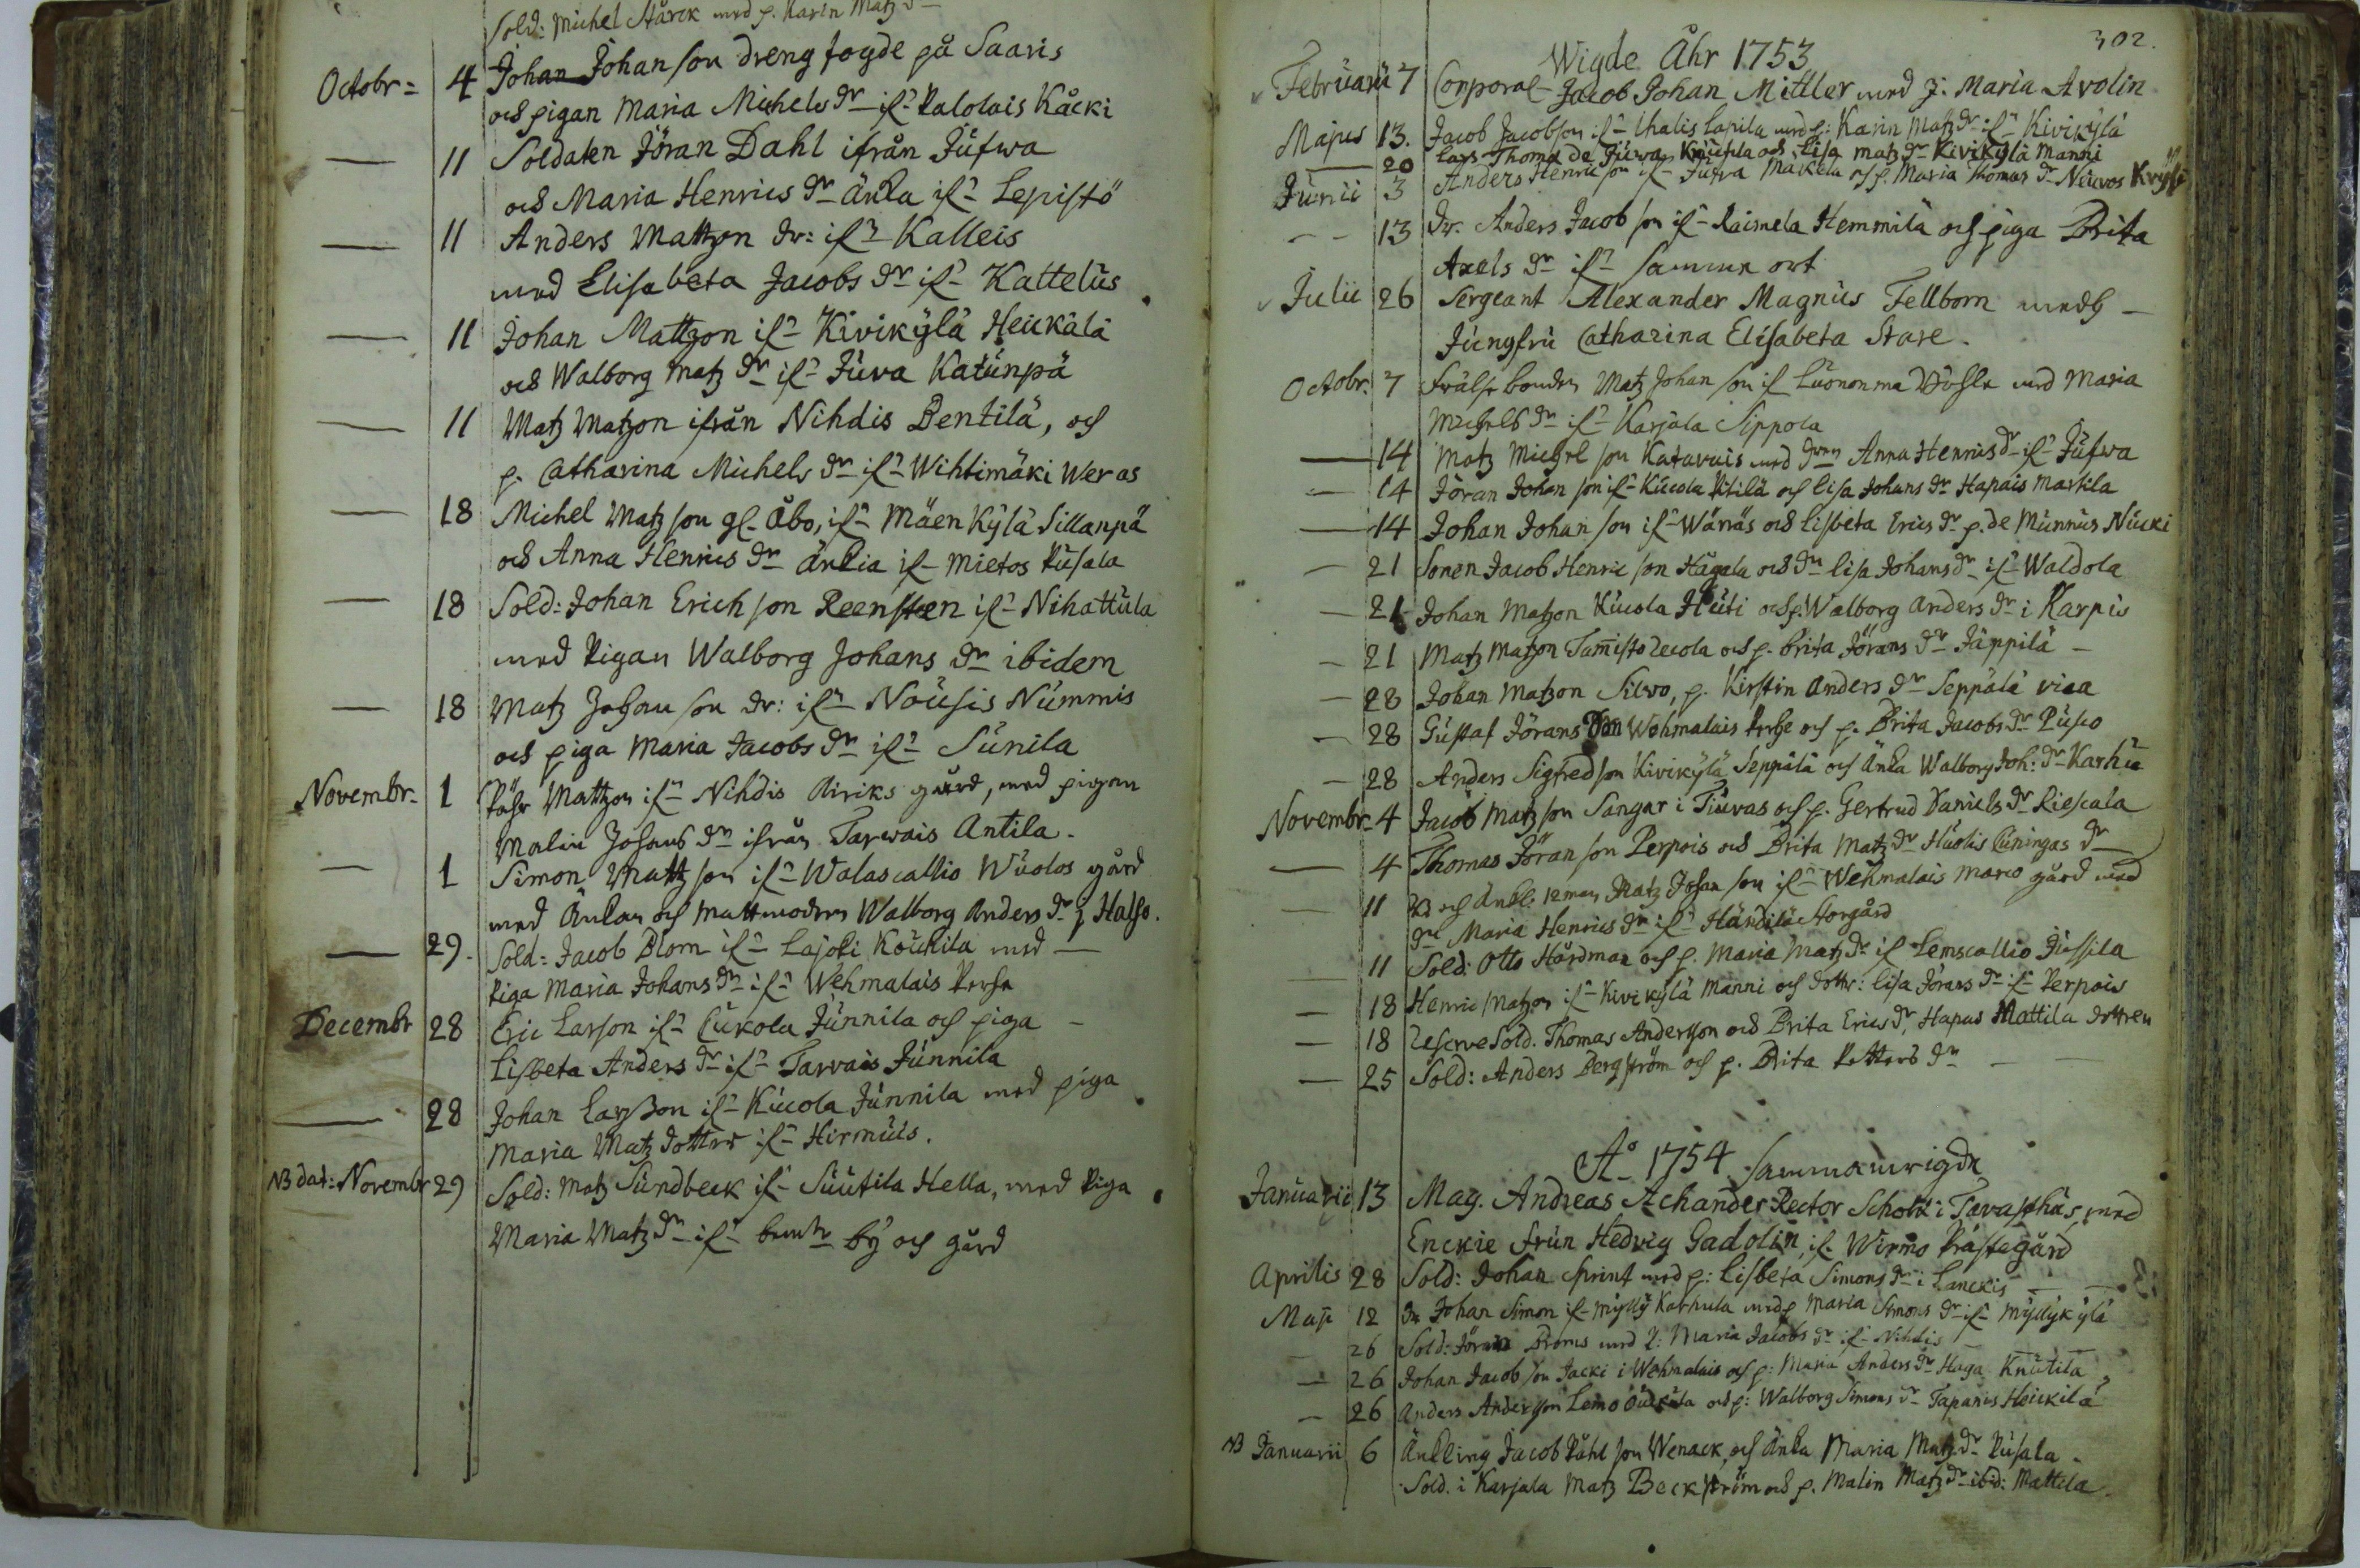 Sold: Michel Stårck med p. Karin Matz dr
Octobr = 4 Johan Johanson dreng fogde på Saaris
och pigan Maria Michels dr if:n Palolais Kåcki
— 11 Soldaten Jöran Dahl ifrån Jufwa
och Maria Henrics dr Änka if:n Lepistö
— 11 Anders Mattzon dr: if:n Kalleis
med Elisabeta Jacobs dr if:n Kattelus
— 11 Johan Mattzon if:n Kivikylä Heickälä
och Walborg Matz dr if:n Juva Katunpä
— 11 Matz Matzon ifrån Nihdis Pentilä, och
p. Catharina Michels dr if:n Wihtimäki Weras
— 18 Michel Matzson gl. Åbo, if:n Mäenkylä Sillanpä
och Anna Henrics dr Änkia if:n Mietos Pusala
— 18 Sold: Johan Erichson Reensteen if:n Nihattula
med Pigan Walborg Johans dr ibidem
— 18 Matz Johanson dr: if:n Nousis Nummis
och piga Maria Jacobs dr if:n Sunila
Novembr. 1 Påhl Mattzon if:n Nihdis gård, med pigan
Malin Johans dr ifrån Tarwais Antila.
— 1 Simon Mattzson if:n Walascallio Wuolos gård
med Änkan och Matmodren Walborg Anders dr Halso.
— 29. Sold: Jacob Blom if:n Lajoki Koukila med —
Piga Maria Johans dr if:n Wehmalais Perhe
Decembr 28 Eric Larson if:n Cukola Junnila och piga —
Lisbeta Anders dr if:n Tarvais Junnila
— 28 Johan Larsson if:n Kucola Junnila med piga
Maria Matz dotter if:n Hirmuis.
NB dat: Novembr 29 Sold: Matz Sundbeck if:n Suutila Hella, med Piga
Maria Matz dr if:n bem:te by och gård
302.
Wigde Åhr 1753
Februarii 7 Corporal Jacob Johan Mittler med J: Maria Avolin
Majus 13. Jacob Jacobson if:n Uhalis Lapila med p: Karin Matz dr if:n Kivikylä
— 20 Lars Thoma de Juwa Knuupila och Lisa Matz dr Kivikylä Manni
Junii 3 Anders Henricson if:n Jufva Mäkelä och p. Maria Thomas dr Neuvos
— 13 Dr. Anders Jacobson if:n Raimela Hemmilä och piga Brita
Axels dr if:n samma ort
Julii 26 Sergeant Alexander Magnus Fellborn medh —
Jungfru Catharina Elisabeta Stare.
Octobr. 7 Frälsebonden Matz Johanson if:n Luonnonma med Maria
Michels dr if:n Karjala Sippola
— 14 Matz Michelson Katavais med Anna Henrics dr if:n Jufwa
— 14 Jöran Johanson if:n Kucola Pitilä och Lisa Johans dr Hapais Martila
— 14 Johan Johanson if:n Wänäs och Lisbeta Erics dr p. de Munnus Nucki
— 21 Sonen Jacob Henricson Hagala och dn Lisa Johans dr if:n Waldola
— 21 Johan Matzon Kucola Huti och p. Walborg Anders dr i Karpis
— 21 Matz Matzon Tamisto Recola och p. Brita Jörans dr Jäppilä —
— 28 Johan Matzon Silvo, p. Kirstin Anders dr Seppälä
— 28 Gustaf Jöransson Wehmalais Perhe och p. Brita Jacobs dr Pusco
— 28 Anders Sigfredson Kivikylä Seppälä och Änka Walborg Joh: dr Karhu
Novembr. 4 Jacob Matzson Sangar i Tiuvas och p. Gertrud Daniels dr Riescala
— 4 Thomas Jöranson Perpois och Brita Matz dr Huolis Cuningas dr
— 11 och Änkl: 12man Matz Johanson if:n Wehmalais Marco gård med
Maria Henrics dr if:n Händilä Storgård
— 11 Sold: Otto Hårdman och p. Maria Matz dr if:n Lemscallio Jussila
— 18 Henric Matzon if:n Kivikylä Manni och dottr: Lisa Jörans dr if:n Perpois
— 18 Reserve Sold. Thomas Andersson och Brita Erics dr, Hapas Mattila dottren
— 25 Sold: Anders Bergström och p. Brita Petters dr —
A:o 1754 sammanwigde
Januarii 13 Mag. Andreas Achander Rector Scholæ i Tavasthus, med
Enckie frun Hedvig Gadolin, if:n Wirmo Prästegård
Aprilis 28 Sold: Johan Sprint med p: Lisbeta Simons dr i Lanckis —
Maji 12 Dr Johan Simon if:n Mylly Karhula med p Maria Simons dr if:n Myllykylä
— 26 Sold: Jöran Broms med P: Maria Jacobs dr if:n Nihdis —
— 26 Johan Jacobson Jacki i Wehmalais och p: Maria Anders dr Haga Knutila
— 26 Anders Andersson Lemo och p: Walborg Simons dr Tapanis Heickilä
NB Januarii 6 Änkling Jacob Påhlson Wenack, och Änka Maria Matz dr Pusala.
Sold. i Karjala Matz Beckström och p. Malin Matz dr ibid: Mattila.